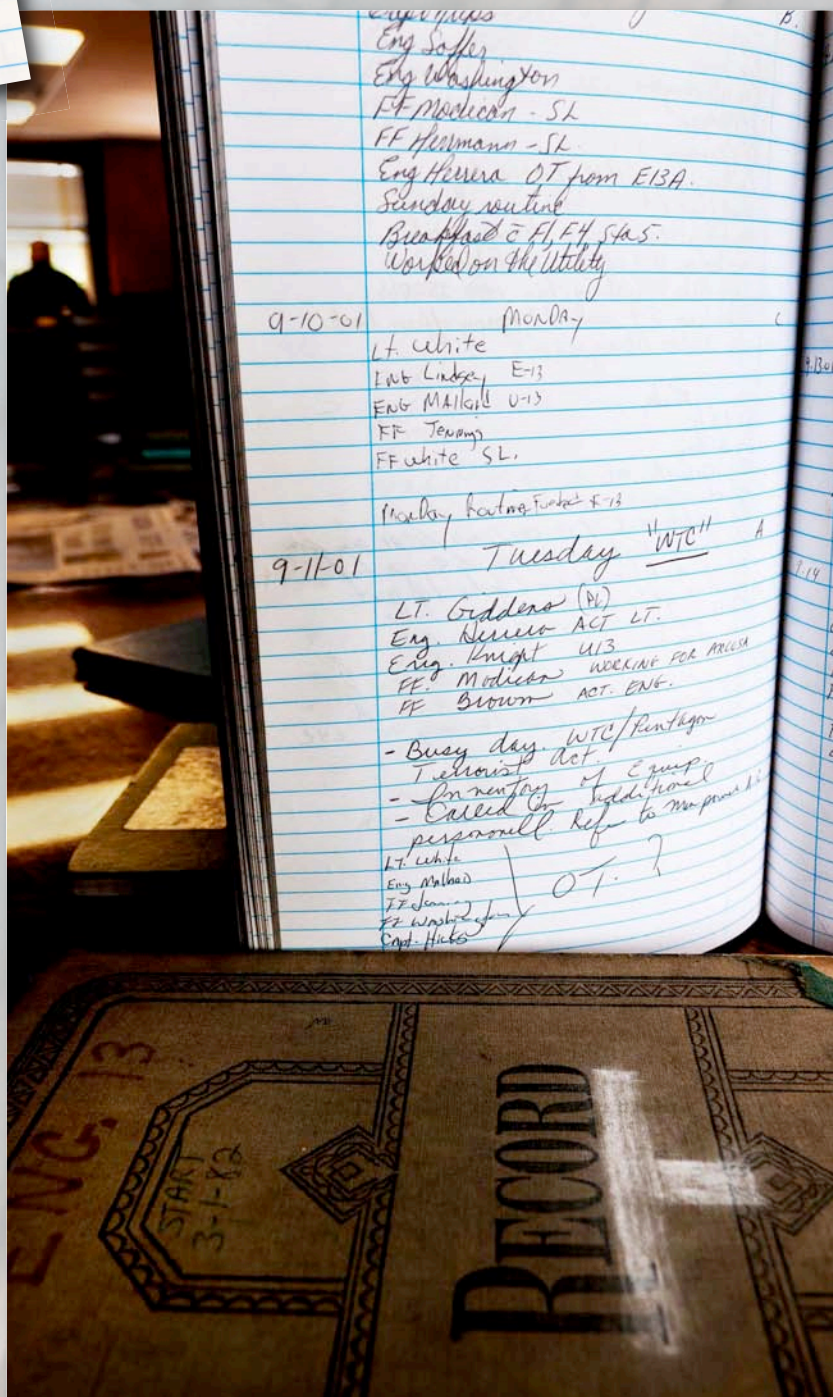 B.
Eng Soffer
Eng Washington
FF Modican - SL
FF Herrmann - SL.
Eng Herrera OT from E13A.
Sunday routine
Breakfast c̄ F1, F4, Sta 5.
Worked on the Utility
9-10-01 MONDAY C
Lt. White
ENG Lindsey E-13
ENG MAlhaid U-13
FF Jennings
FF white SL.
Monday Routine E-13
9-11-01 Tuesday "WTC" A
LT. Giddens (PL)
Eng. Herrera ACT LT.
Eng. Knight U13
FF. Modican WORKING FOR
FF Brown ACT. ENG.
- Busy day. WTC/Pentagon
Terrorist Act.
- Inventory of Equip.
- Called in additional
personnell. Refer to
LT. White
Eng Malhaid
FF
FF Washington
Capt. Hicks
OT. ?
9-13-01
9-14
ENG. 13
START
3-1-82
RECORD